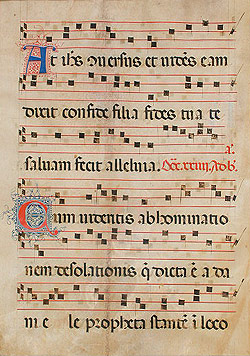 At ih̄s ꝯuersus et uidēs eam
dixit confide filia fides tua te
saluam fecit alleluia.
Cum uideritis abhominatio
nem desolationis q̄ dicta ē a da
nie le propheta stantē i loco